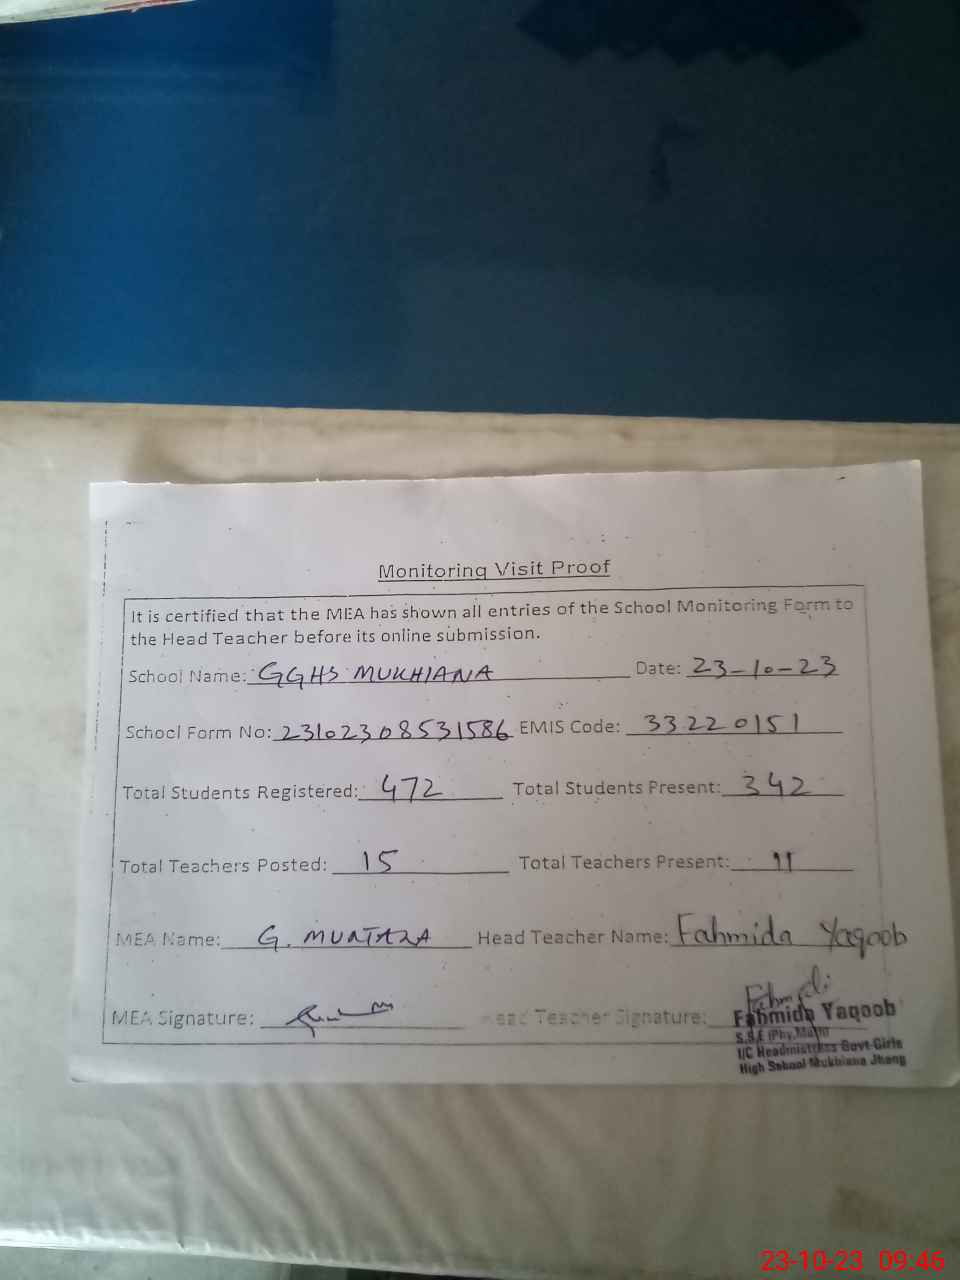 Monitoring Visit Proof
It is certified that the MEA has shown all entries of the School Monitoring Form to
the Head Teacher before its online submission.
School Name: GGHS MUKHIANA Date: 23-10-23
School Form No: 23102308531586 EMIS Code: 33220151
Total Students Registered: 472 Total Students Present: 342
Total Teachers Posted: 15 Total Teachers Present: 11
MEA Name: G. MURTAZA Head Teacher Name: Fahmida Yaqoob
MEA Signature: Head Teacher Signature:
Fahmida Yaqoob
S.S.E (Phy,Math)
I/C Headmistress Govt Girls
High School Mukhiana Jhang
23-10-23 09:46